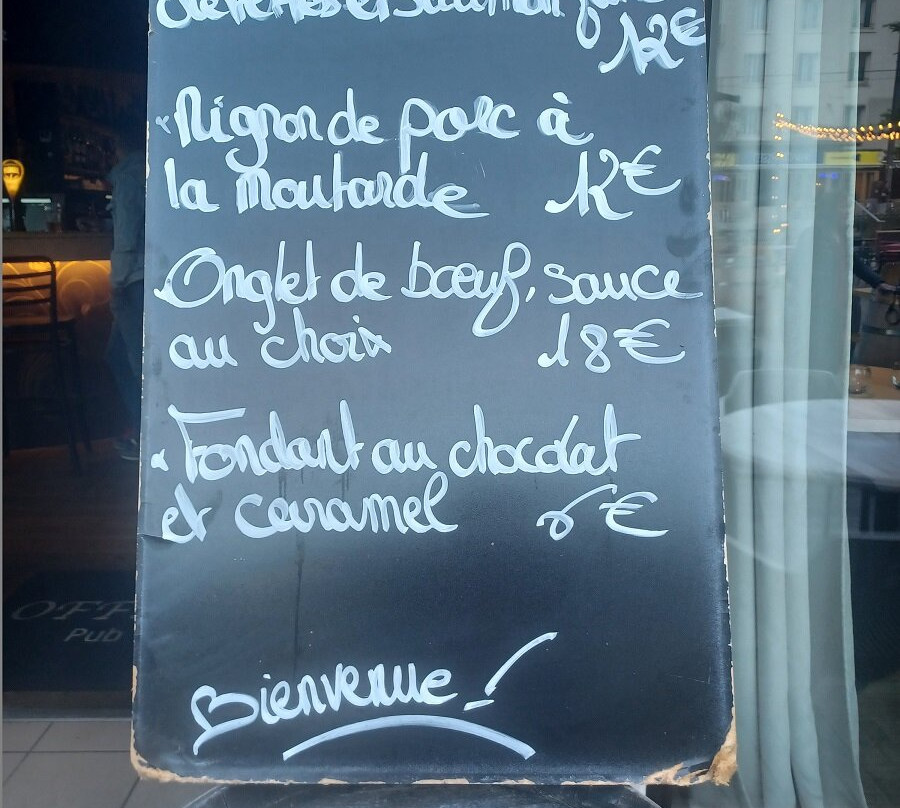 et saumon
12€
Mignon de porc à
la moutarde 12€
Onglet de bœuf, sauce
au choix 18€
Fondant au chocolat
et caramel 6€
Bienvenue !
OFF
Pub